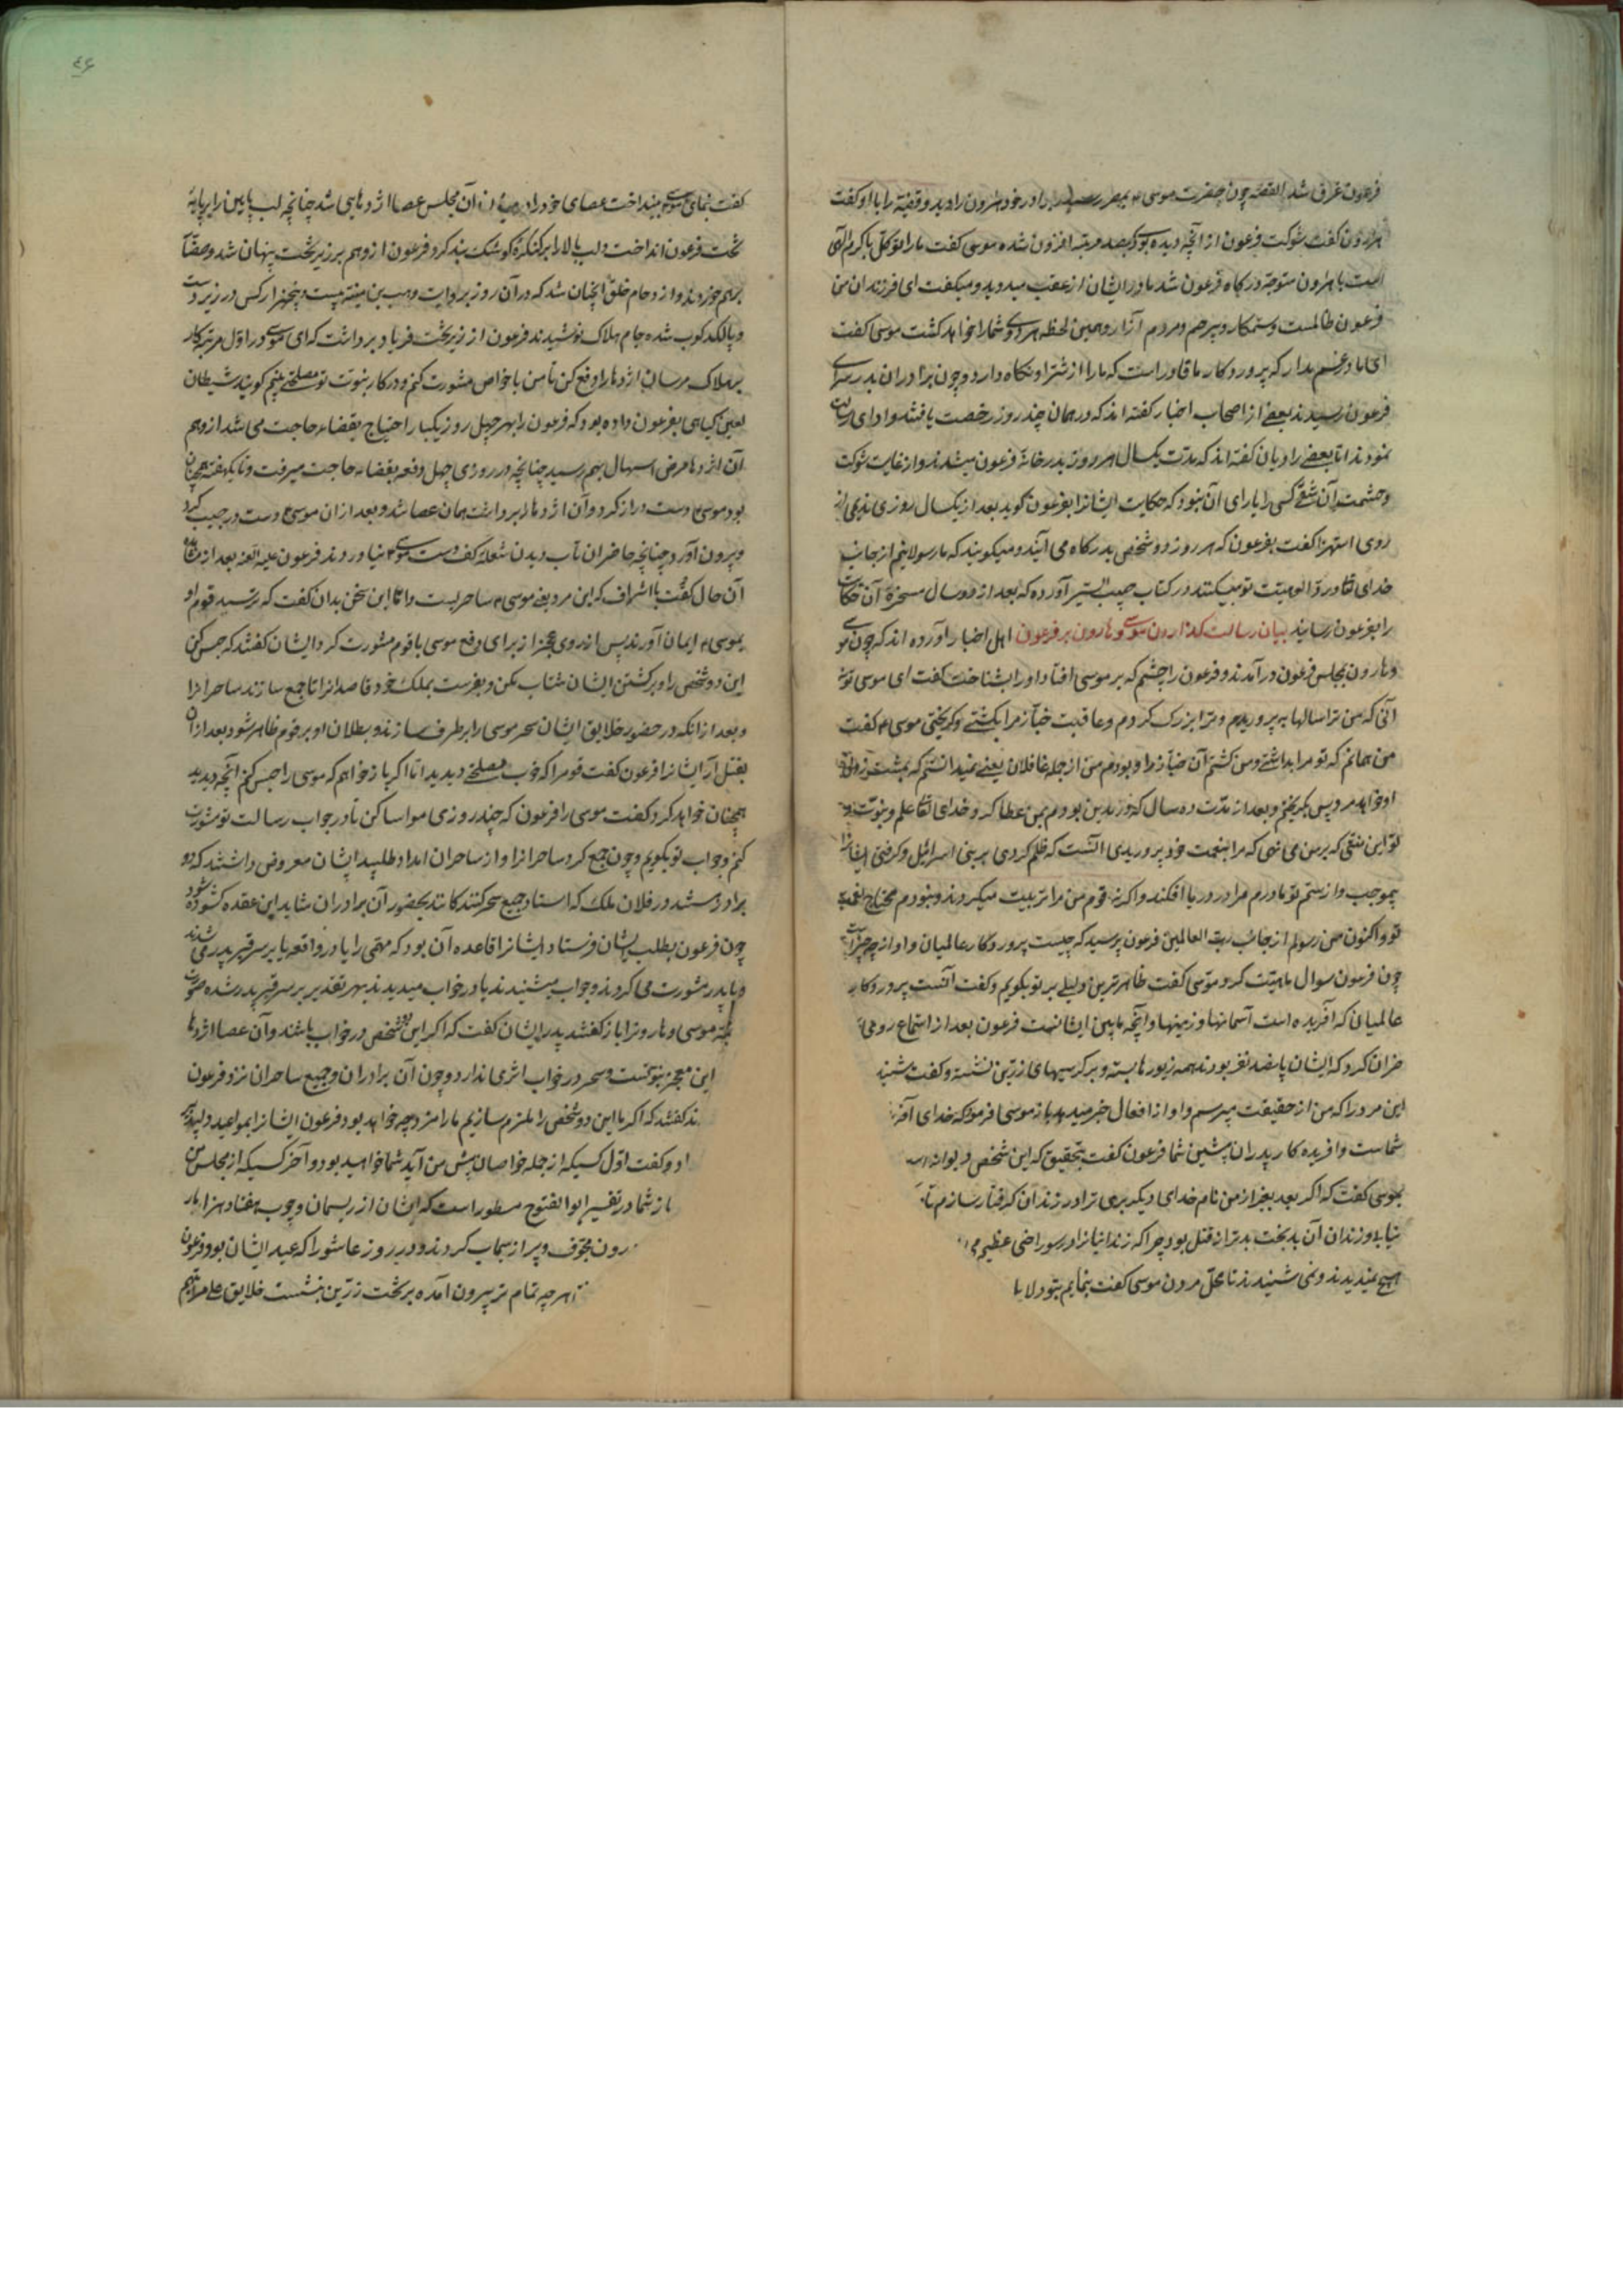 فرعون غرق شد القصه چون حضرت موسی بمصر رسید برادر خود هارون را دید و قضیه را با او گفت
هارون گفت شوکت فرعون از آنچه دیده بودی صد مرتبه افزون شده موسی گفت ما را توکل با کرم الهی
است با هارون متوجه درکاه فرعون شد مادر ایشان از عقب میدوید و میکفت ای فرزندان من
فرعون ظالمست و ستمکار و بیرحم و مردم آزار و همین لحظه هر دوی شما را خواهد کشت موسی کفت
ای مادر غم مدار که پروردکار ما قادر است که ما را از شر او نکاه دارد و چون برادران بدر سرای
فرعون رسیدند بعضی از اصحاب اخبار کفته اند که در همان چند روز رخصت یافتند و ادای رسالت
نمودند اما بعضی راویان کفته اند که مدت یکسال هر روز بدر خانه فرعون میشدند و از غایت شوکت
و حشمت آن شقی کسی را یارای آن نبود که حکایت ایشانرا بفرعون کوید بعد از یکسال روزی ندیمی از
روی استهزا کفت بفرعون که هر روز دو شخص بدرکاه می آیند و میکویند که ما رسولانیم از جانب
خدای تعالی و در کتاب حبیب السیر آورده که بعد از دو سال مسخره آن حکایت
را بفرعون رسانید بیان رسالت کذاردن موسی و هارون بر فرعون اهل اخبار آورده اند که چون موسی
و هارون بمجلس فرعون در آمدند و فرعون را چشم که بر موسی افتاد او را بشناخت کفت ای موسی تو نه
آنی که من ترا سالها بپروریدم و ترا بزرک کردم و عاقبت خباز مرا بکشتی و کریختی موسی کفت
من همانم که تو مرا بداشتی و من کشتم آن خباز را و بودم من از جمله غافلان یعنی نمیدانستم که بمشت زدن
او خواهد مرد پس بکریختم و بعد از مدت ده سال که در مدین بودم بمن عطا کرد خدای تعالی علم و نبوت و
تو این منتی که بر من می نهی که مرا بنعمت خود پروریدی آنست که ظلم کردی بر بنی اسرائیل و کرفتی ایشانرا
بیموجب و از ستم تو مادرم مرا در دریا افکند و اکر نه قوم من مرا تربیت میکردند و نبودم محتاج نعمت
تو و اکنون من رسولم از جانب رب العالمین فرعون پرسید که چیست پروردکار عالمیان و او از چه چیز است
چون فرعون سوال ماهیت کرد موسی کفت ظاهرترین دلیلی بر تو بکویم و کفت آنست پروردکار
عالمیان که آفریده است آسمانها و زمینها و آنچه مابین ایشانست فرعون بعد از استماع رو
کرد که ایشان پانصد نفر بودند همه زیورها بسته و بر کرسیهای زرین نشسته و کفت بشنید
این مرد را که من از حقیقت میپرسم و او از افعال خبر میدهد باز موسی فرمود که خدای
شماست و آفریده کار پدران پیشین شما فرعون کفت بتحقیق که این شخص دیوانه
بموسی کفت که اکر بعد بغیر از من نام خدای دیکر بری ترا در زندان کرفتار سازم تا
نیابد و زندان آن بدبخت بدتر از قتل بود چرا که زندانیانرا در سوراخی عظیم
هیچ نمیدیدند و نمی شنیدند تا محل مردن موسی کفت بنمایم بتو
کفت بنمای موسی بینداخت عصای خود را در میان آن مجلس عصا اژدهایی شد چنانچه لب پایین را بر پایه
تخت فرعون انداخت و لب بالا را بر کنکره کوشک بند کرد فرعون از وهم بر زیر تخت پنهان شد و خلق
برهم خوردند و از دحام خلق آنچنان شد که در آن روز بروایت وهب بن منبه بیست و پنجهزار کس در زیر دست
و پا لکدکوب شده جام هلاک نوشیدند فرعون از زیر تخت فریاد برداشت که ای موسی در اول مرتبه کار
بهلاک مرسان اژدها را دفع کن تا من با خواص مشورت کنم و در کار نبوت تو مصلحتی بینم کویند شیطان
لعین کیاهی بفرعون داده بود که فرعون را بهر چهل روز یکبار احتیاج بقضاء حاجت می شد از وهم
آن اژدها مرض اسهال بهم رسید چنانچه در روزی چهل دفعه بقضاء حاجت میرفت و تا یکهفته همچنان
بود موسی دست دراز کرد و آن اژدها را برداشت همان عصا شد و بعد از آن موسی دست در جیب کرد
و بیرون آورد چنانچه حاضران تاب دیدن شعله کف دست موسی نیاوردند فرعون علیه اللعنه بعد از مشاهده
آن حال کفت با اشراف که این مرد یعنی موسی ساحریست دانا این سخن بدان کفت که ترسید قوم او
بموسی ایمان آورند پس از روی عجز از برای دفع موسی با قوم مشورت کرد ایشان کفتند که حبس کن
این دو شخص را و بر کشتن ایشان شتاب مکن و بفرست بملک خود قاصدانرا تا جمع سازند ساحرانرا
و بعد از آنکه در حضور خلایق ایشان سحر موسی را برطرف سازند و بطلان او بر قوم ظاهر شود بعد از آن
بقتل آر ایشانرا فرعون کفت قوم را که خوب مصلحتی دیدید اما اکر باز خواهم که موسی را حبس کنم آنچه دیدید
همچنان خواهد کرد کفت موسی را فرعون که چند روزی مواسا کن تا در جواب رسالت تو مشورت
کنم و جواب تو بکویم و چون جمع کرد ساحرانرا و از ساحران امداد طلبید ایشان معروض داشتند که دو
برادر هستند در فلان ملک که استاد جمیع سحر کنندکانند بحضور آن برادران شاید این عقده کشوده شود
چون فرعون بطلب ایشان فرستاد ایشانرا قاعده آن بود که مهمی را یا در واقعه یا بر سر قبر پدر می شدند
و با پدر مشورت می کردند و جواب میشنیدند یا در خواب میدیدند بهر تقدیر بر سر قبر پدر شده صورت
قصه موسی و هارونرا باز کفتند پدر ایشان کفت که اکر این دو شخص در خواب باشند و آن عصا اژدها
این معجزه نبوتست و سحر در خواب اثری ندارد و چون آن برادران و جمیع ساحران نزد فرعون
کفتند که اکر ما این دو شخص را ملزم سازیم ما را مزد چه خواهد بود فرعون ایشانرا بمواعید دلپذیر
داد و کفت اول کسیکه از جمله خواصان پیش من آید شما خواهید بود و آخر کسیکه از مجلس من
باز شما در تفسیر ابو الفتوح مسطور است که ایشان از ریسمان و چوب هفتاد هزار مار
مجوف و پر از سیماب کردند و در روز عاشورا که عید ایشان بود فرعون
هر چه تمام تر بیرون آمده بر تخت زرین بنشست خلایق علی مراتبهم